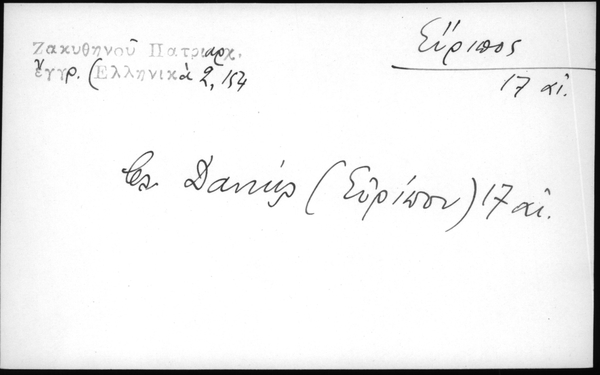 Ζακυθηνοῦ Πατριαρχ.
ἔγγρ. (Ἑλληνικὰ 2, 154
Εὔριπος
17 αἰ.
Δανιήλ (Εὐρίπου) 17 αἰ.